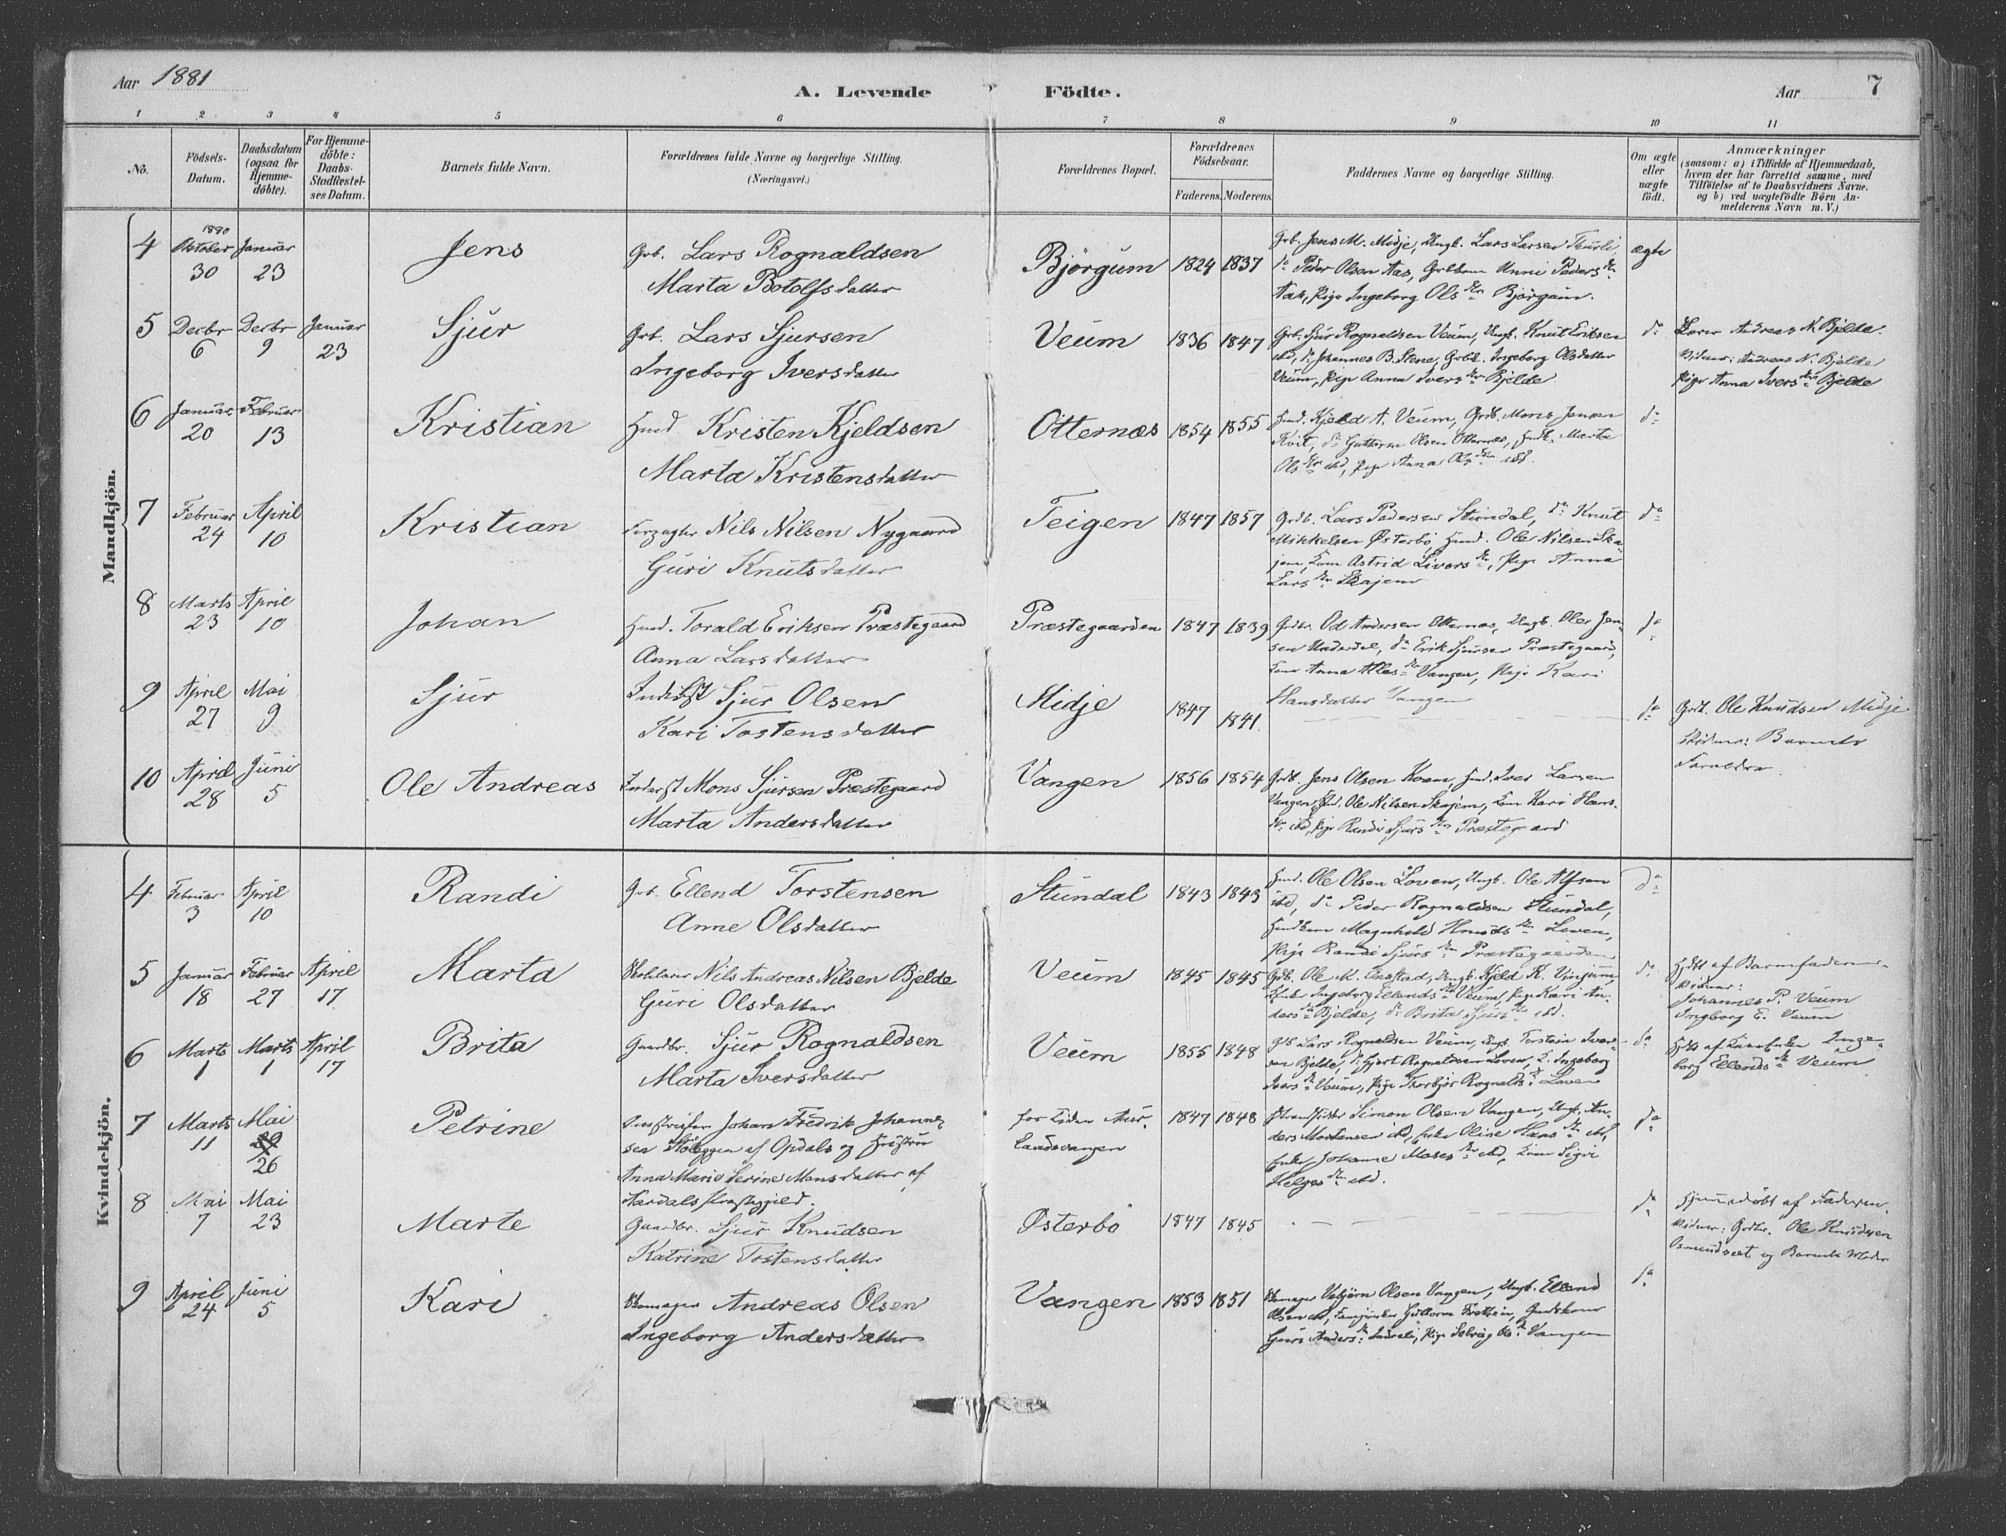 Aar 1881
A. Levende Födte.
Aar
7
1 2 3 4 5 6 7 8 9 10 11
No.
Födsels-Datum.
Daabsdatum (ogsaa for Hjemmedöbte).
For Hjemmedöbte: Daabs-Stadfæstelses Datum.
Barnets fulde Navn.
Forældrenes fulde Navne og borgerlige Stilling.
(Næringsvei.)
Forældrenes Bopæl.
Forældrenes Födselsaar.
Faderens. Moderens.
Faddernes Navne og borgerlige Stilling.
Om ægte eller uægte födt.
Anmærkninger
(saasom: a) i Tilfælde af Hjemmedaab, hvem der har forrettet samme, med Tilföielse af to Daabsvidners Navne. og b) ved uægtefödte Börn Anmelderens Navn m. V.)
Mandkjön.
4 1880 Oktober 30 Januar 23 Jens Grb. Lars Rognaldsen
Marta Botolfsdatter
Björgum 1824 1837 Grb. Jens M. Midje, Ungk. Lars Larsen
Peder Olsen Aas, Unni Peders
Aas, Pige Ingeborg Ols Björgum.
ægte
5 Decbr 6 Decbr 9 Januar 23 Sjur Grb. Lars Sjursen
Ingeborg Iversdatter
Veum 1836 1847 Grb. Sjur Rognaldsen Veum, Ungk. Knut Eriksen
ibd, do Johannes B. Stene, Ingeborg Olsdatter
Veum, Pige Anna Ivers Bjelde
do Lærer Andreas N. Bjelde.
Vidner: Andreas N. Bjelde
Pige Anna Ivers Bjelde
6 Januar 20 Februar 13 Kristian Husd Kristen Kjeldsen
Marta Kristensdatter
Otternæs 1854 1855 Husd. Kjeld A. Veum, Grdb. Mons Jensen
do Guttorm Olsen Otternes, Marta
Ols ibd, Pige Anna Ols ibd.
do
7 Februar 24 April 10 Kristian Nils Nilsen Nygaard
Guri Knutsdatter
Teigen 1847 1857 Grdb. Lars Pedersen Stundal, do Knut
Mikkelsen Østerbö Husd. Ole Nilsen Skajem, Astrid Livers, Pige Anna
Lars Skajem
do
8 Marts 23 April 10 Johan Husd. Torald Eriksen Præstegaard
Anna Larsdatter
Præstegaarden 1847 1839 Grdbr. Od Andersen Otternes, Ungk. Ole Jensen Underdal, do Erik Sjursen Præstegaard,
Anna Vangen, Pige Kari
Hansdatter Vangen
do
9 April 27 Mai 9 Sjur Sjur Olsen
Kari Tostensdatter
Midje 1847 1841 do Grdb. Ole Knudsen Midje
Vidner: Barnets
Foreldre.
10 April 28 Juni 5 Ole Andreas Mons Sjursen Præstegaard
Marta Andersdatter
Vangen 1856 1854 Grdb. Jens Olsen Husd. Iver Larsen
Vangen, Ole Nilsen Skajem, Kari Hans
ibd, Pige Randi Sjurs Præstegaard
Kvindekjön.
4 Februar 3 April 10 Randi Grb. Ellend Torstensen
Anne Olsdatter
Stundal 1843 1843 Husd. Ole Olsen Loven, Ungk. Ole Alfsen
ibd, do Peder Rognaldsen Stundal,
Magnhild Knuds Loven,
Pige Randi Sjurs Præstegaarden
do
5 Januar 18 Februar 27 April 17 Marta Skolelærer Nils Andreas Nilsen Bjelde
Guri Olsdatter
Veum 1845 1845 Grdb. Ole M. Ungk. Kjeld K. Vingum,
Ingeborg Ellends Veum, Pige Kari Anders Bjelde, do Brita Sjurs ibd.
do Hjdbt af Barnefaderen.
Vidner:
Johannes P. Veum
Ingborg E. Veum
6 Marts 1 Marts 1 April 17 Brita Gaardbr. Sjur Rognaldsen
Marta Iversdatter
Veum 1855 1848 Lars Rognaldsen Veum, Ungk. Torstein Iversen Bjelde, do Rognaldsen Loven, Ingeborg
Ivers Veum, Pige Thorbjör Rognalds Loven
do Hjdbt af Ingeborg Ellends Veum
7 Marts 11 Mai 26 Petrine Johan Fredrik Johannesen af Opdals og Hustru
Anna Marie Serine Monsdatter af
Aardals Præstegjeld.
for Tiden Aurlandsvangen 1847 1848 Simon Olsen Vangen, Ungk. Anders Mortensen ibd, Enke Oline Hans ibd,
Enke Johanne Moses ibd, Sigri
Helges ibd.
do
8 Mai 7 Mai 23 Marte Gaardbr. Sjur Knudsen
Katrine Tostensdatter
Østerbö 1847 1845 do Hjemmedöbt af Faderen.
Vidner: Grdbr. Ole Knudsen
og Barnets Moder
9 April 24 Juni 5 Kari Skomager Andreas Olsen
Ingeborg Andersdatter
Vangen 1853 1851 Skomager Vebjörn Olsen Vangen, Ungk. Ellend
Olsen ibd, Guttorm
Guri Anders Pige Solveig Ols Vangen
do